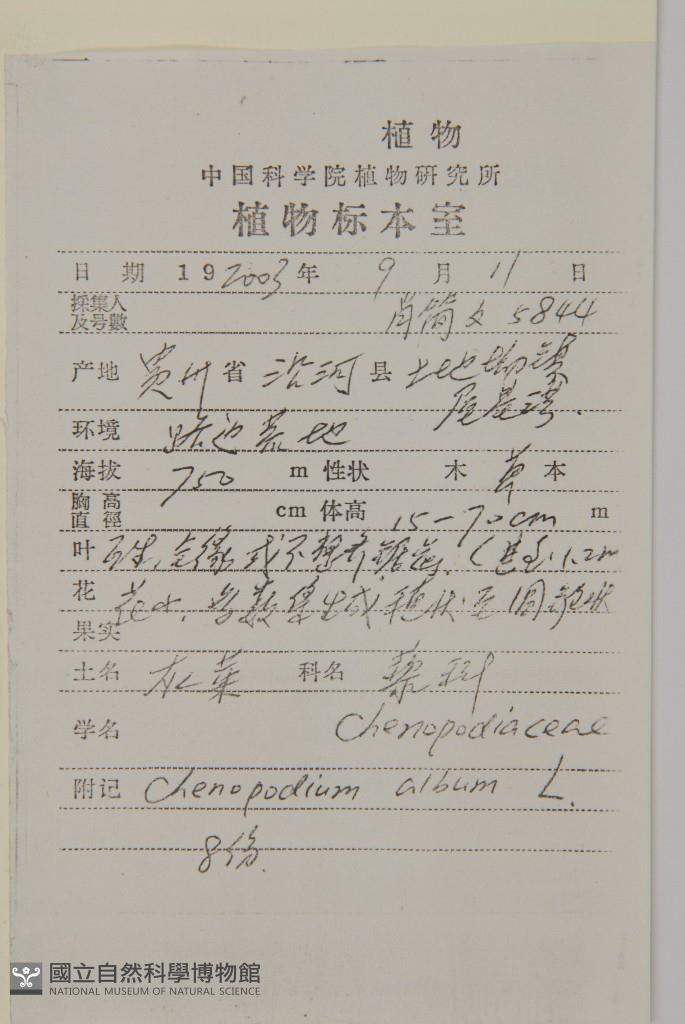 植物
中国科学院植物研究所
植物标本室
日期 19 2003年 9月 11日
採集人及号數 肖简文 5844
产地 贵州省 沿河县 土地坳镇
环境 路边荒地
海拔 750 m 性状 木 草 本
胸高直徑 cm 体高 15-70cm m
叶 互生,全缘或不整齐锯齿.
花 花小,多数集生成穗状至圆锥状
果实
土名 灰菜 科名 藜科
学名 Chenopodiaceae
附记 Chenopodium album L.
8份.
國立自然科學博物館
NATIONAL MUSEUM OF NATURAL SCIENCE